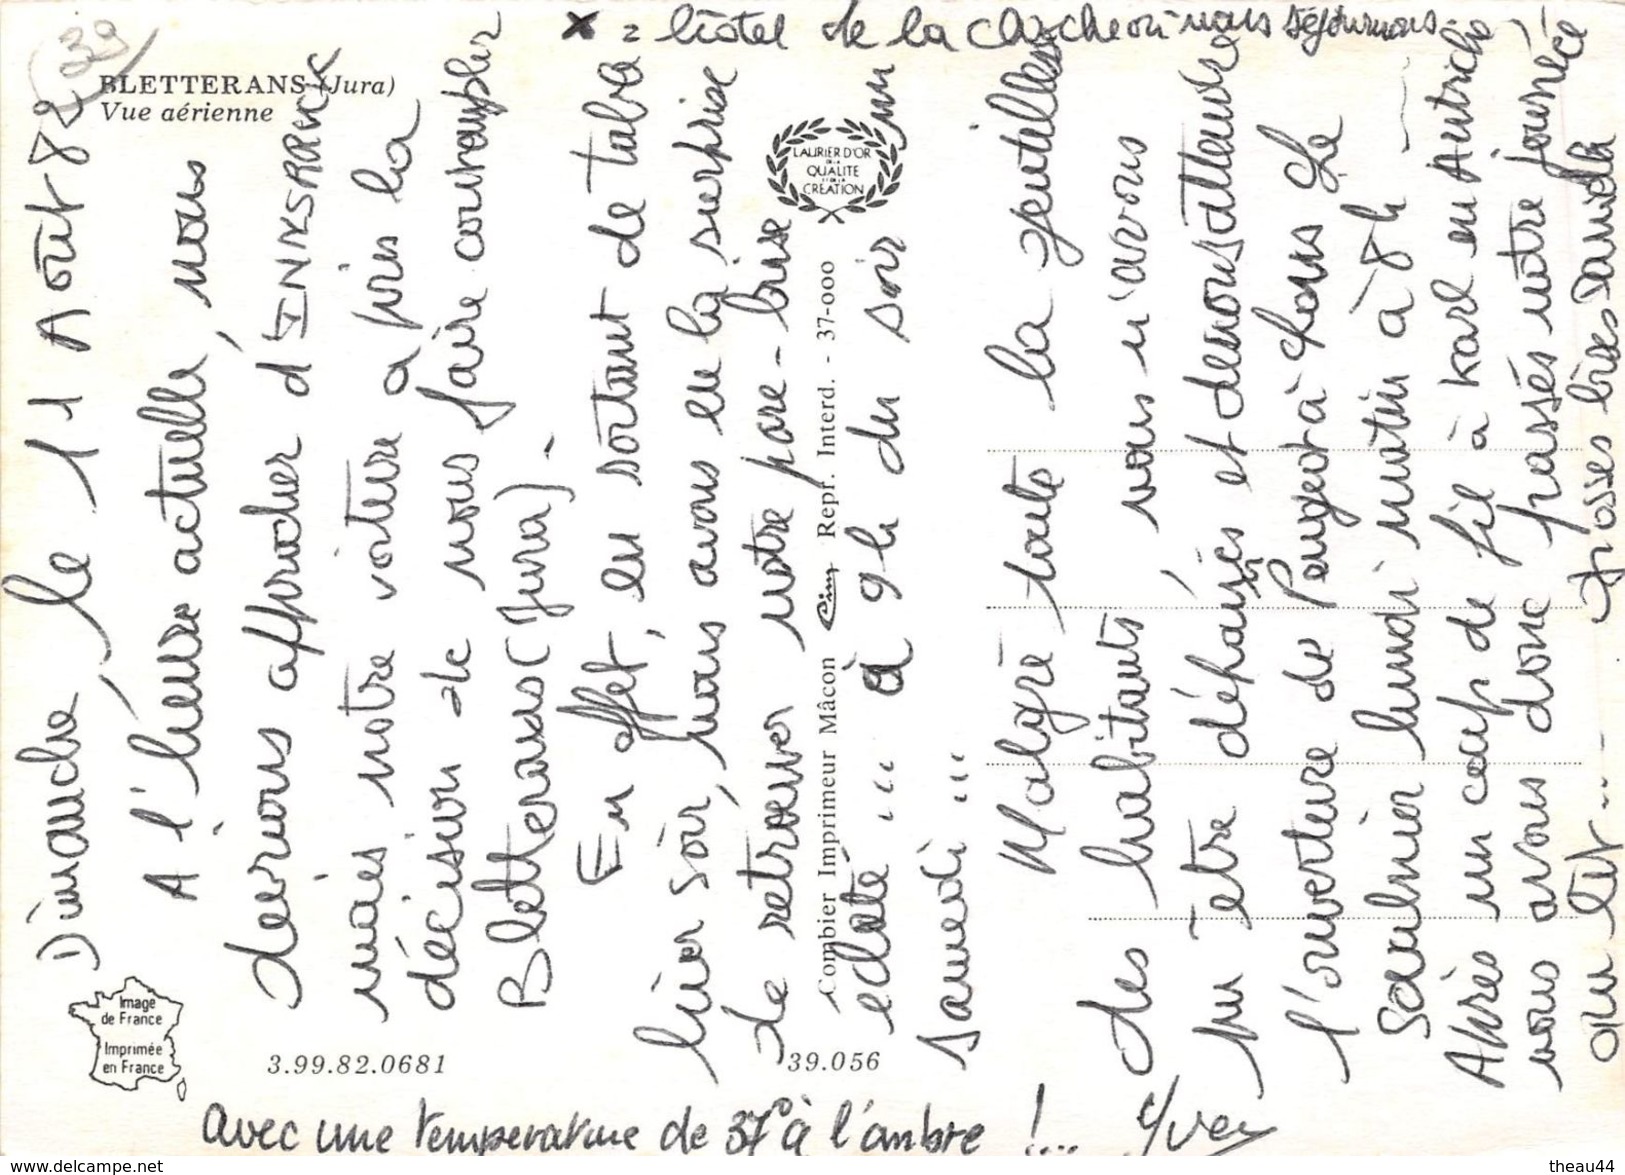 x = hôtel de la cloche où nous séjournons
39
BLETTERANS (Jura)
Vue aérienne
Dimanche, le 11 Août 82
A l'heure actuelle, nous
devrions approcher d'INNSBRUCK
mais notre voiture a pris la
décision de nous faire contempler
Bletterans (Jura).
En effet, en sortant de table
hier soir, nous avons eu la surprise
de retrouver notre pare-brise
éclaté ... à 9h du soir un
samedi ...
Malgré toute la gentillesse
des habitants nous n'avons
pu être dépannés et nous attendons
l'ouverture de Peugeot à Lons Le
Saulnier lundi matin à 8h
Après un coup de fil à Karl en Autriche
nous avons donc passés notre journée
au lit... Grosses bises Daniela
avec une température de 37° à l'ombre !... Yves
LAURIER D'OR
DE LA
QUALITE
ET DE LA
CREATION
Combier Imprimeur Mâcon Cim Repr. Interd. - 37-000
Image
de France
Imprimée
en France
3.99.82.0681
39.056
www.delcampe.net
theau44